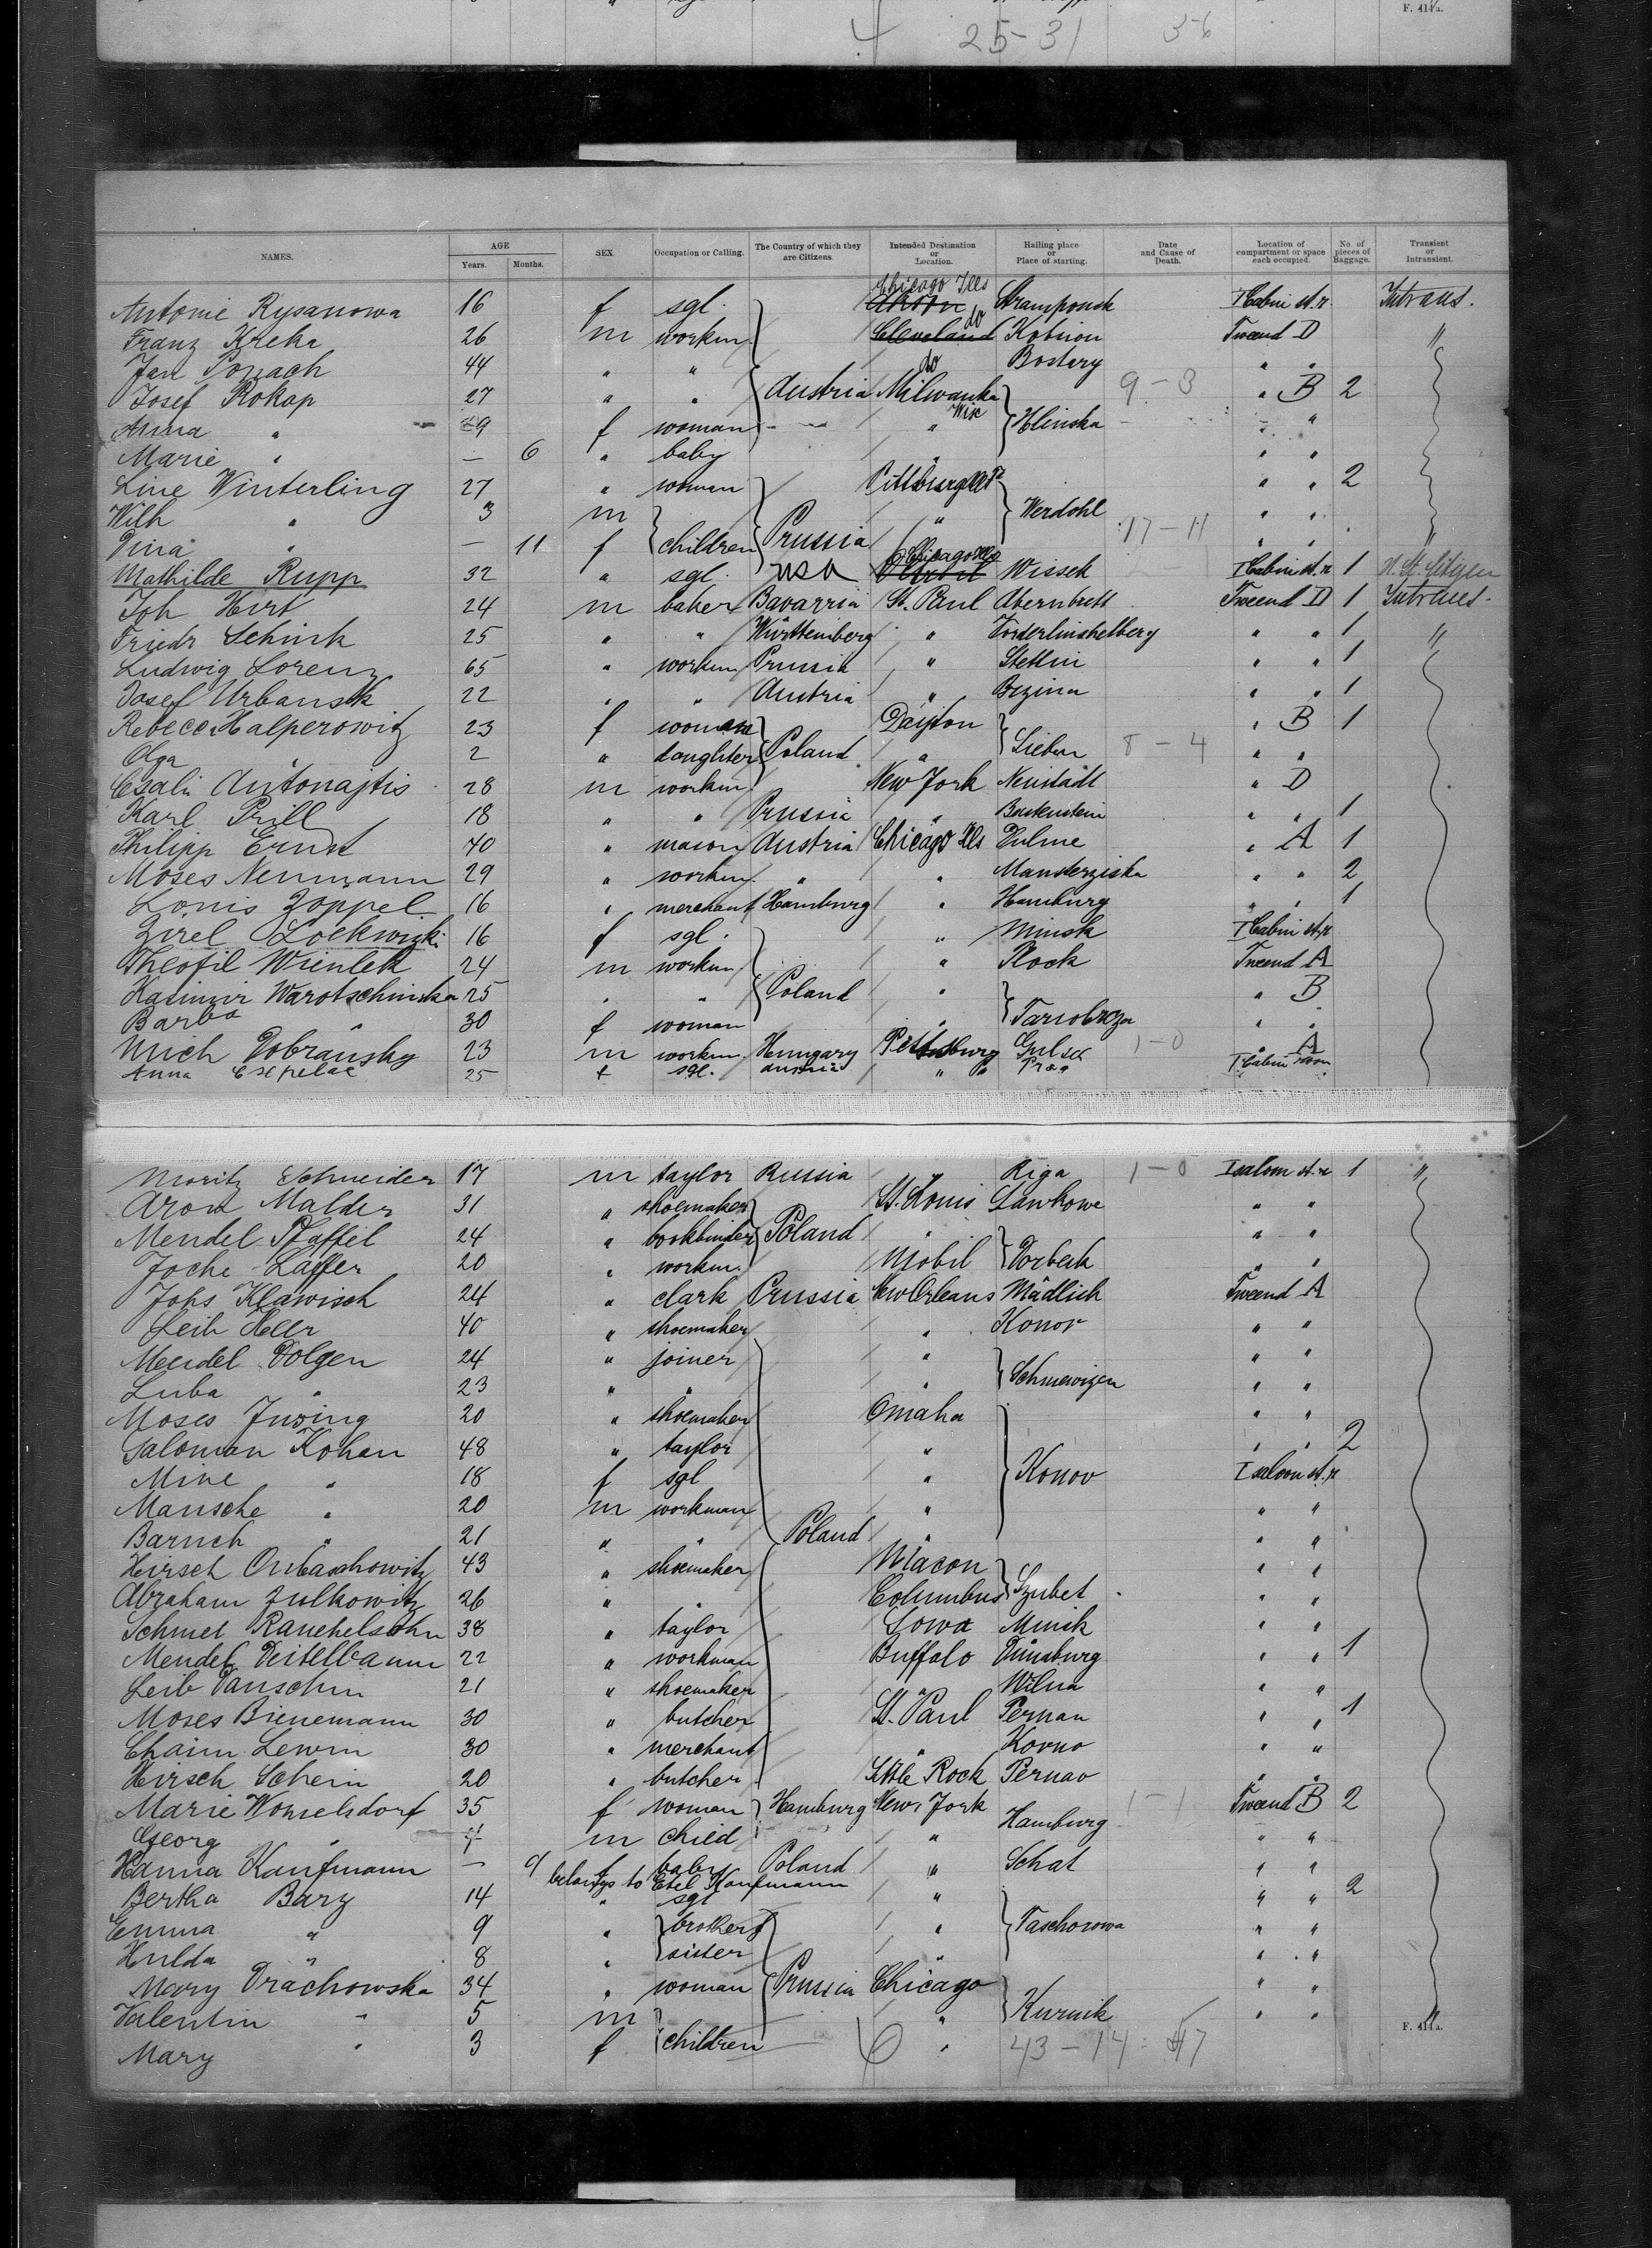 F. 414a.
4 25-31 36
NAMES. AGE Years. Months. SEX Occupation or Calling. The Country of which they are Citizens. Intended Destination or Location. Hailing place or Place of starting. Date and Cause of Death. Location of compartment or space each occupied. No. of pieces of Baggage. Transient or Intransient.
Chicago Ills
Antonie Rysanowa 16 f sgl. Akron Stramponsk I Cabin st. r. Intrans.
Franz Kreka 26 m workm. Cleveland do Kobrion Tweend D "
Jan Ponach 44 " " do Bostery " "
Josef Rokop 27 " " Austria Milwauka 9-3 " B 2
Anna " 29 f woman " Wisc Hlinska " "
Marie " — 6 " baby " " "
Line Winterling 27 " woman Pittsburg " " 2
Wilh " 3 m " Werdohl " "
Dina " — 11 f children Prussia 17-11 " "
Mathilde Rupp 32 " sgl. USA Chicago Ills Wissek I Cabin st. r 1 U. St. Citizen
Joh Hirt 24 m baker Bavarria St. Paul Abernbutt Tweend D 1 Intrans.
Friedr Schink 25 " " Württemberg " Vorderlinshelberg " " 1 "
Ludwig Lorenz 65 " workm Prussia " Stettin " " 1
Josef Urbansk 22 " " Austria " Bezina " " 1
Rebecca Halperowitz 23 f woman Dayton " B 1
Olga " 2 " daughter Poland " Lieben 8-4 " "
Csali Antonajtis 28 m workm. New York Neustadt " D
Karl Prill 18 " " Prussia " Baskenstein " " 1
Philipp Ernst 40 " mason Austria Chicago Ills Hulme " A 1
Moses Neumann 29 " workm. " " Mansterziska " " 2
Louis Zoppel 16 " merchant Hamburg " Hamburg " " 1
Zirel Lockwizki 16 f sgl. " Minsk I Cabin st. r
Theofil Wientek 24 m workm. " Plock Tweend A
Kasimir Warotschinska 25 " " Poland " " B
Barba " 30 f woman " Tarrobrza " "
Mich Dobransky 23 m workm. Hungary Pittsburg Gulsex 1-0 " A
Anna Czepelac 25 f sgl. Austria " " Prag I Cabin room
Moritz Schneider 17 m taylor Russia Riga 1-0 I saloon st. r 1 "
Aron Malder 31 " shoemaker St. Louis Lawkowe " "
Mendel Pfaffel 24 " bookbinder Poland " " "
Joche Laffer 20 " workm. Mobil Dorbeck " "
Johs Klawisch 24 " clark Prussia New Orleans Mädlich Tweend A
Leib Heer 40 " shoemaker " Konor " "
Mendel Dolgen 24 " joiner " " "
Luba " 23 " " " Schmewizen " "
Moses Juzing 20 " shoemaker Omaha " "
Saloman Kohan 48 " taylor " " " 2
Mine " 18 f sgl " Konov I saloon st. r
Mansche " 20 m workman " " "
Baruch " 21 " " Poland " " "
Hirsch Orbaschowitz 43 " shoemaker Macon " "
Abraham Zulkowitz 26 " " Columbus Szubet " "
Schmel Rauchelsohn 38 " taylor Iowa Minsk " "
Mendel Deitelbaum 22 " workman Buffalo Dünaburg " " 1
Leib Danschin 21 " shoemaker " Wilna " "
Moses Bienemann 30 " butcher St. Paul Pernau " " 1
Chaim Lewin 30 " merchant " Kovno " "
Hirsch Schein 20 " butcher Little Rock Pernav " "
Marie Womelsdorf 35 f woman Hamburg New York 1-1 Tweend B 2
Georg " m child " Hamburg " "
Hanna Kaufmann — 9 f baby Poland " Schat " "
belongs to Etel Kaufmann
Bertha Barz 14 " sgl " " " 2
Emma " 9 " brothers " Taschorowa " "
Hulda " 8 " sister " " "
Mary Drachowska 34 " woman Prussia Chicago " "
Valentin " 5 m " Kurnik " " "
Mary " 3 f children 6 " 43-14 47
F. 414a.